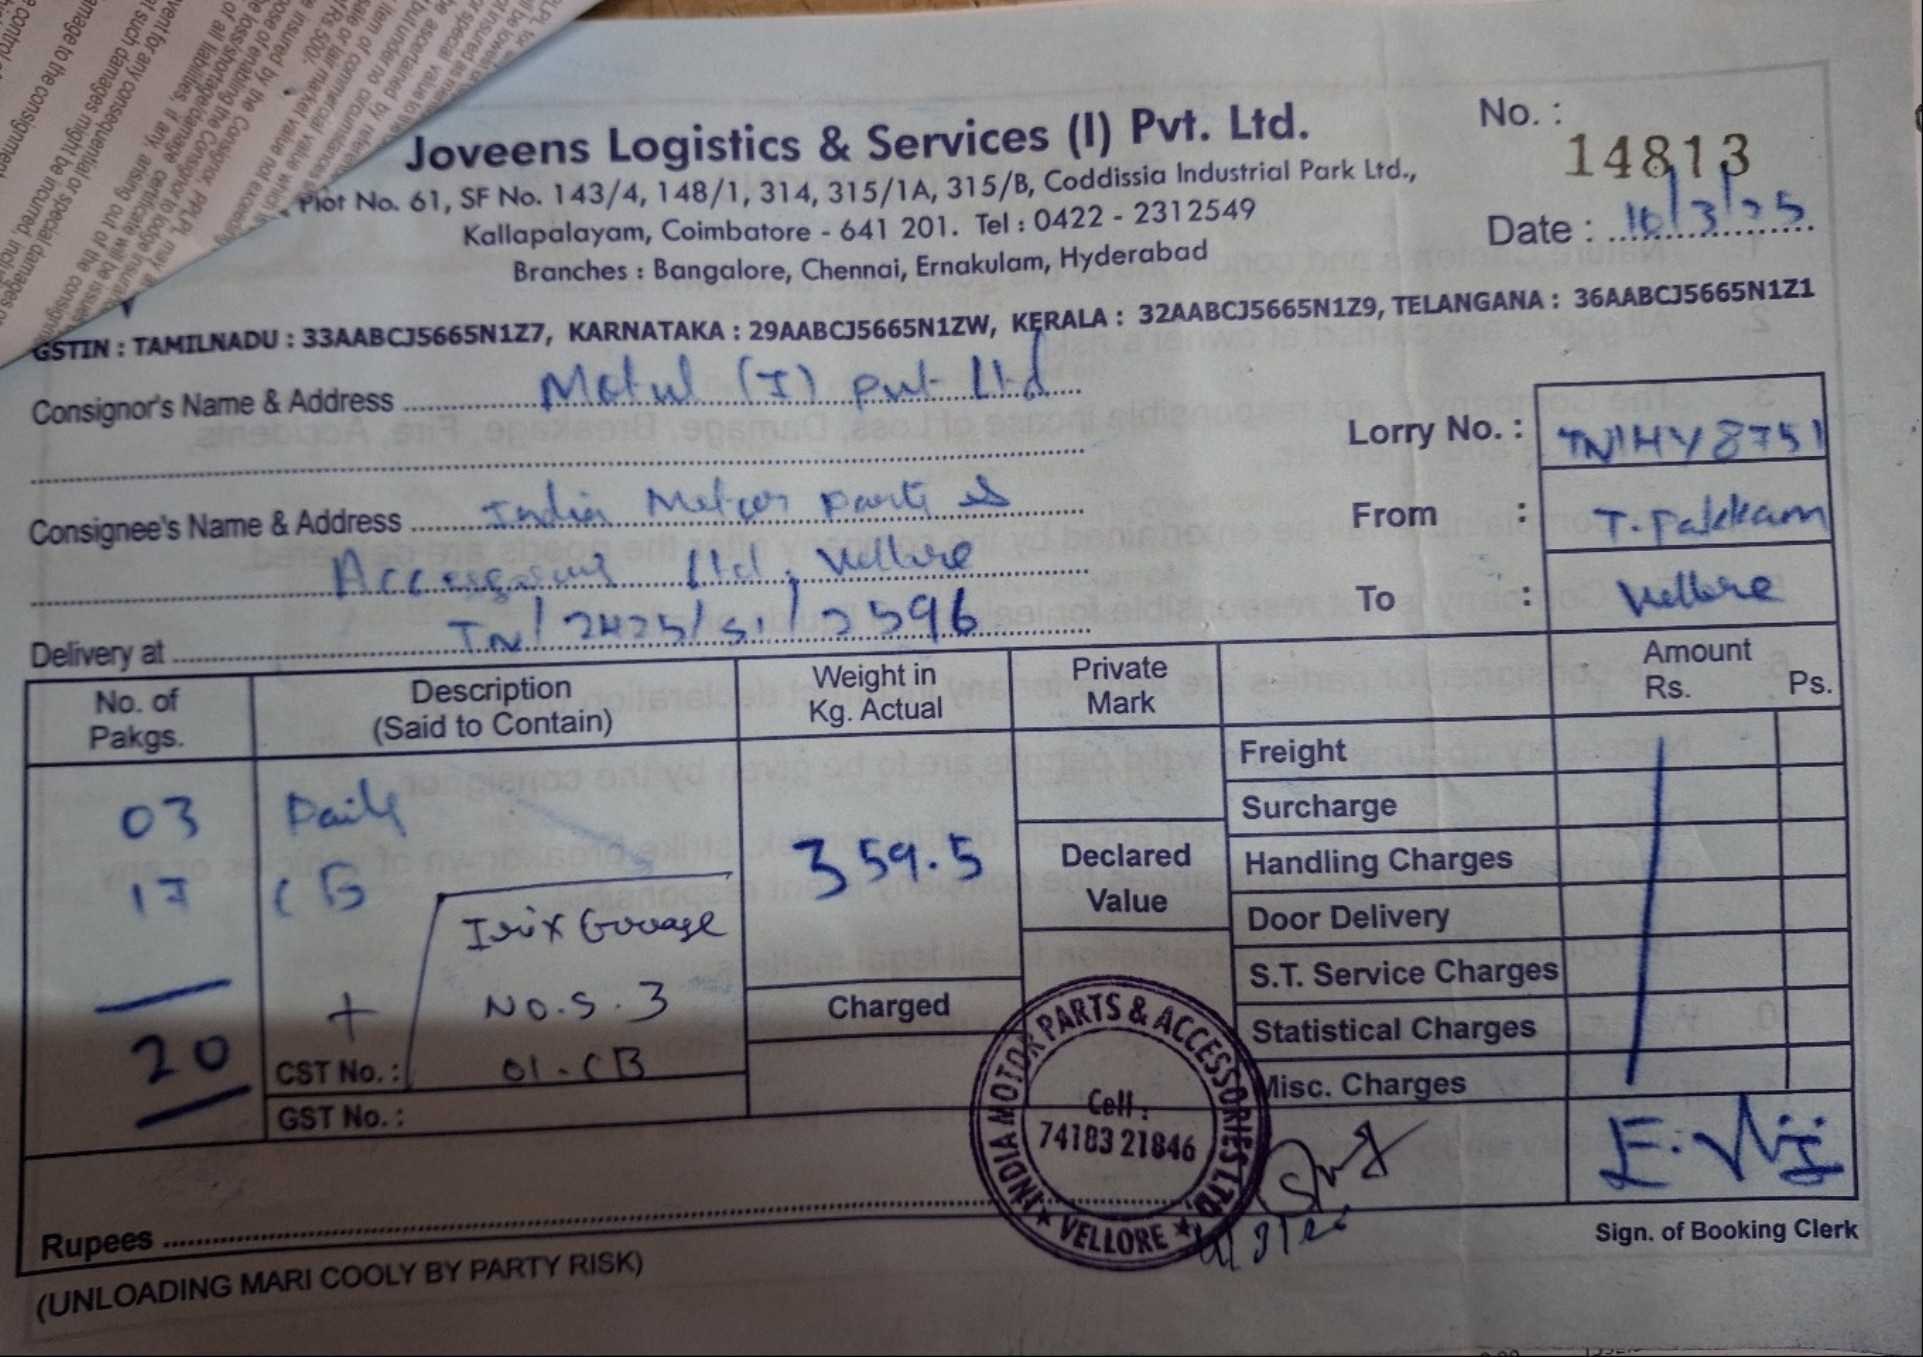 Joveens Logistics & Services (I) Pvt. Ltd.
Plot No. 61, SF No. 143/4, 148/1, 314, 315/1A, 315/B, Coddissia Industrial Park Ltd.,
Kallapalayam, Coimbatore - 641 201. Tel : 0422 - 2312549
Branches : Bangalore, Chennai, Ernakulam, Hyderabad
No. :
14813
Date : 10/3/25
GSTIN : TAMILNADU : 33AABCJ5665N1Z7, KARNATAKA : 29AABCJ5665N1ZW, KERALA : 32AABCJ5665N1Z9, TELANGANA : 36AABCJ5665N1Z1
Consignor's Name & Address Motul (I) Pvt Ltd
Consignee's Name & Address India Motor parts &
Accessories Ltd, Vellore
Delivery at TN/2425/SI/2596
Lorry No. : TN1HY8751
From : T. Pakkam
To : Vellore
No. of Pakgs.
Description (Said to Contain)
Weight in Kg. Actual
Private Mark
Amount
Rs. Ps.
03 Pails
17 CB
20
+
Irix Garage
No.S. 3
01-CB
CST No. :
GST No. :
359.5
Charged
Declared Value
Freight
Surcharge
Handling Charges
Door Delivery
S.T. Service Charges
Statistical Charges
Misc. Charges
INDIA MOTOR PARTS & ACCESSORIES LTD.
Cell :
74183 21846
★ VELLORE ★
Rupees
Sign. of Booking Clerk
(UNLOADING MARI COOLY BY PARTY RISK)